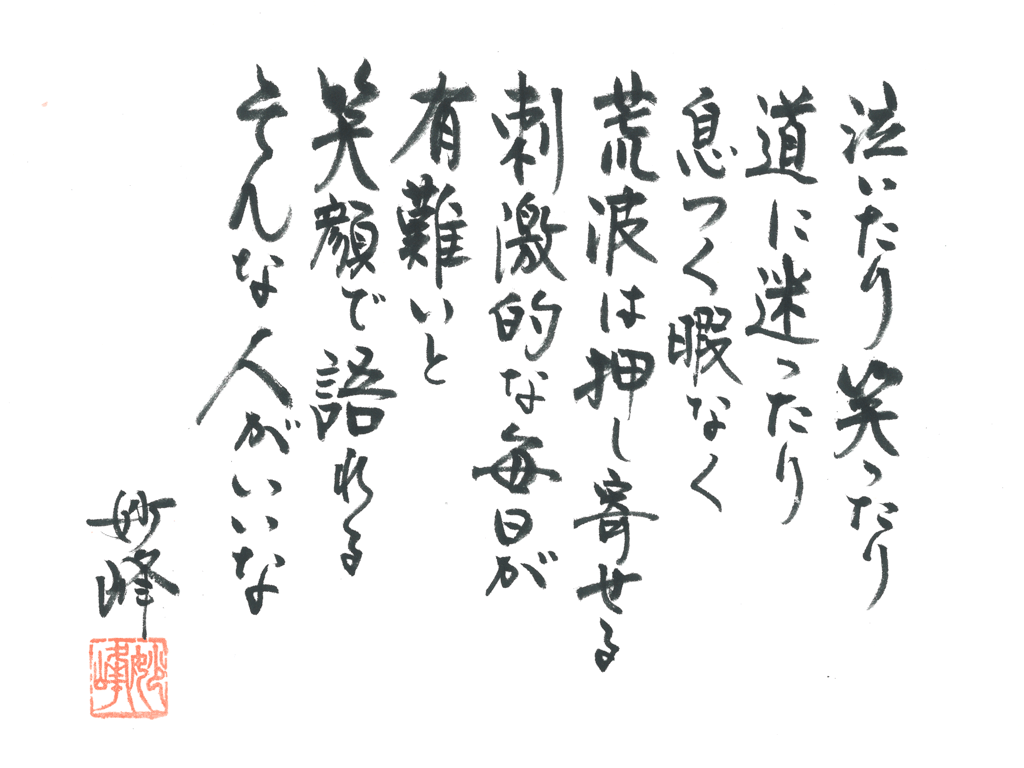 泣いたり笑ったり
道に迷ったり
息つく暇なく
荒波は押し寄せる
刺激的な毎日が
有難いと
笑顔で語れる
そんな人がいいな
妙峰
妙峰